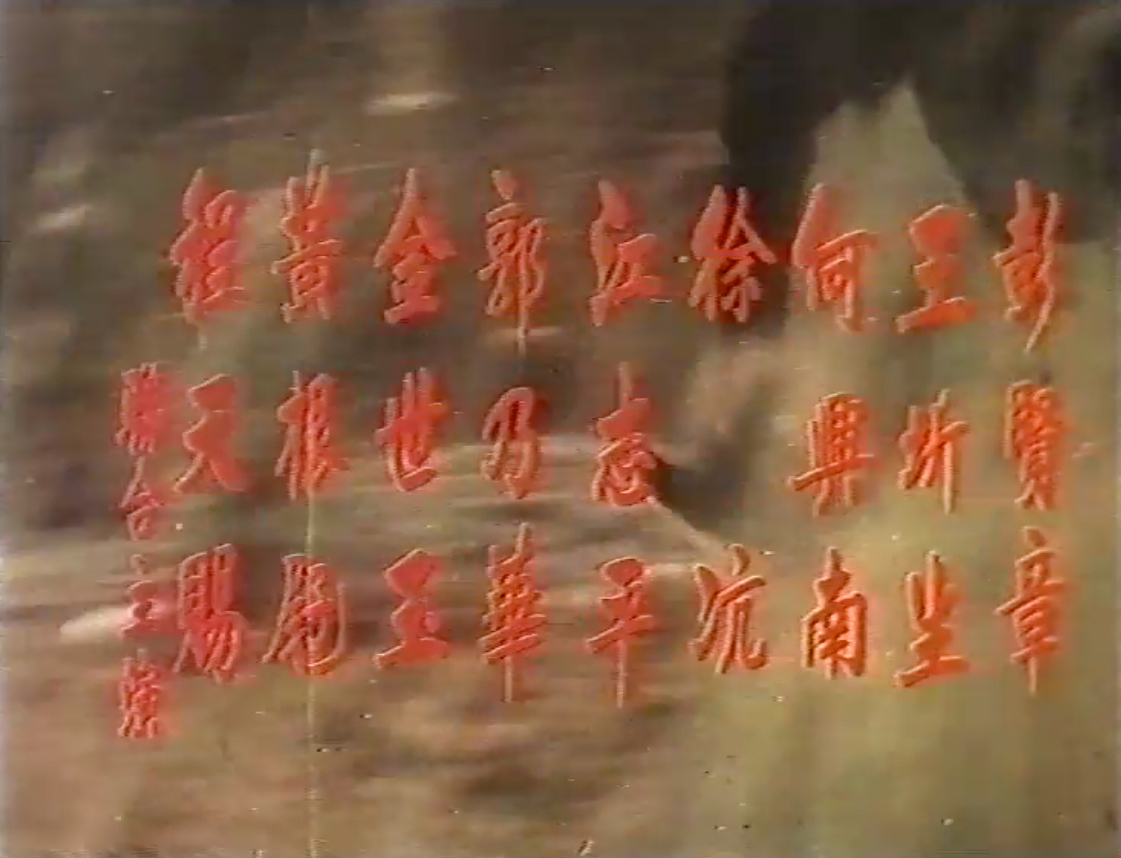 彭賢章
王圻生
何興南
徐坑
江志平
郭乃華
金世玉
黃根屘
程天賜
聯合主演